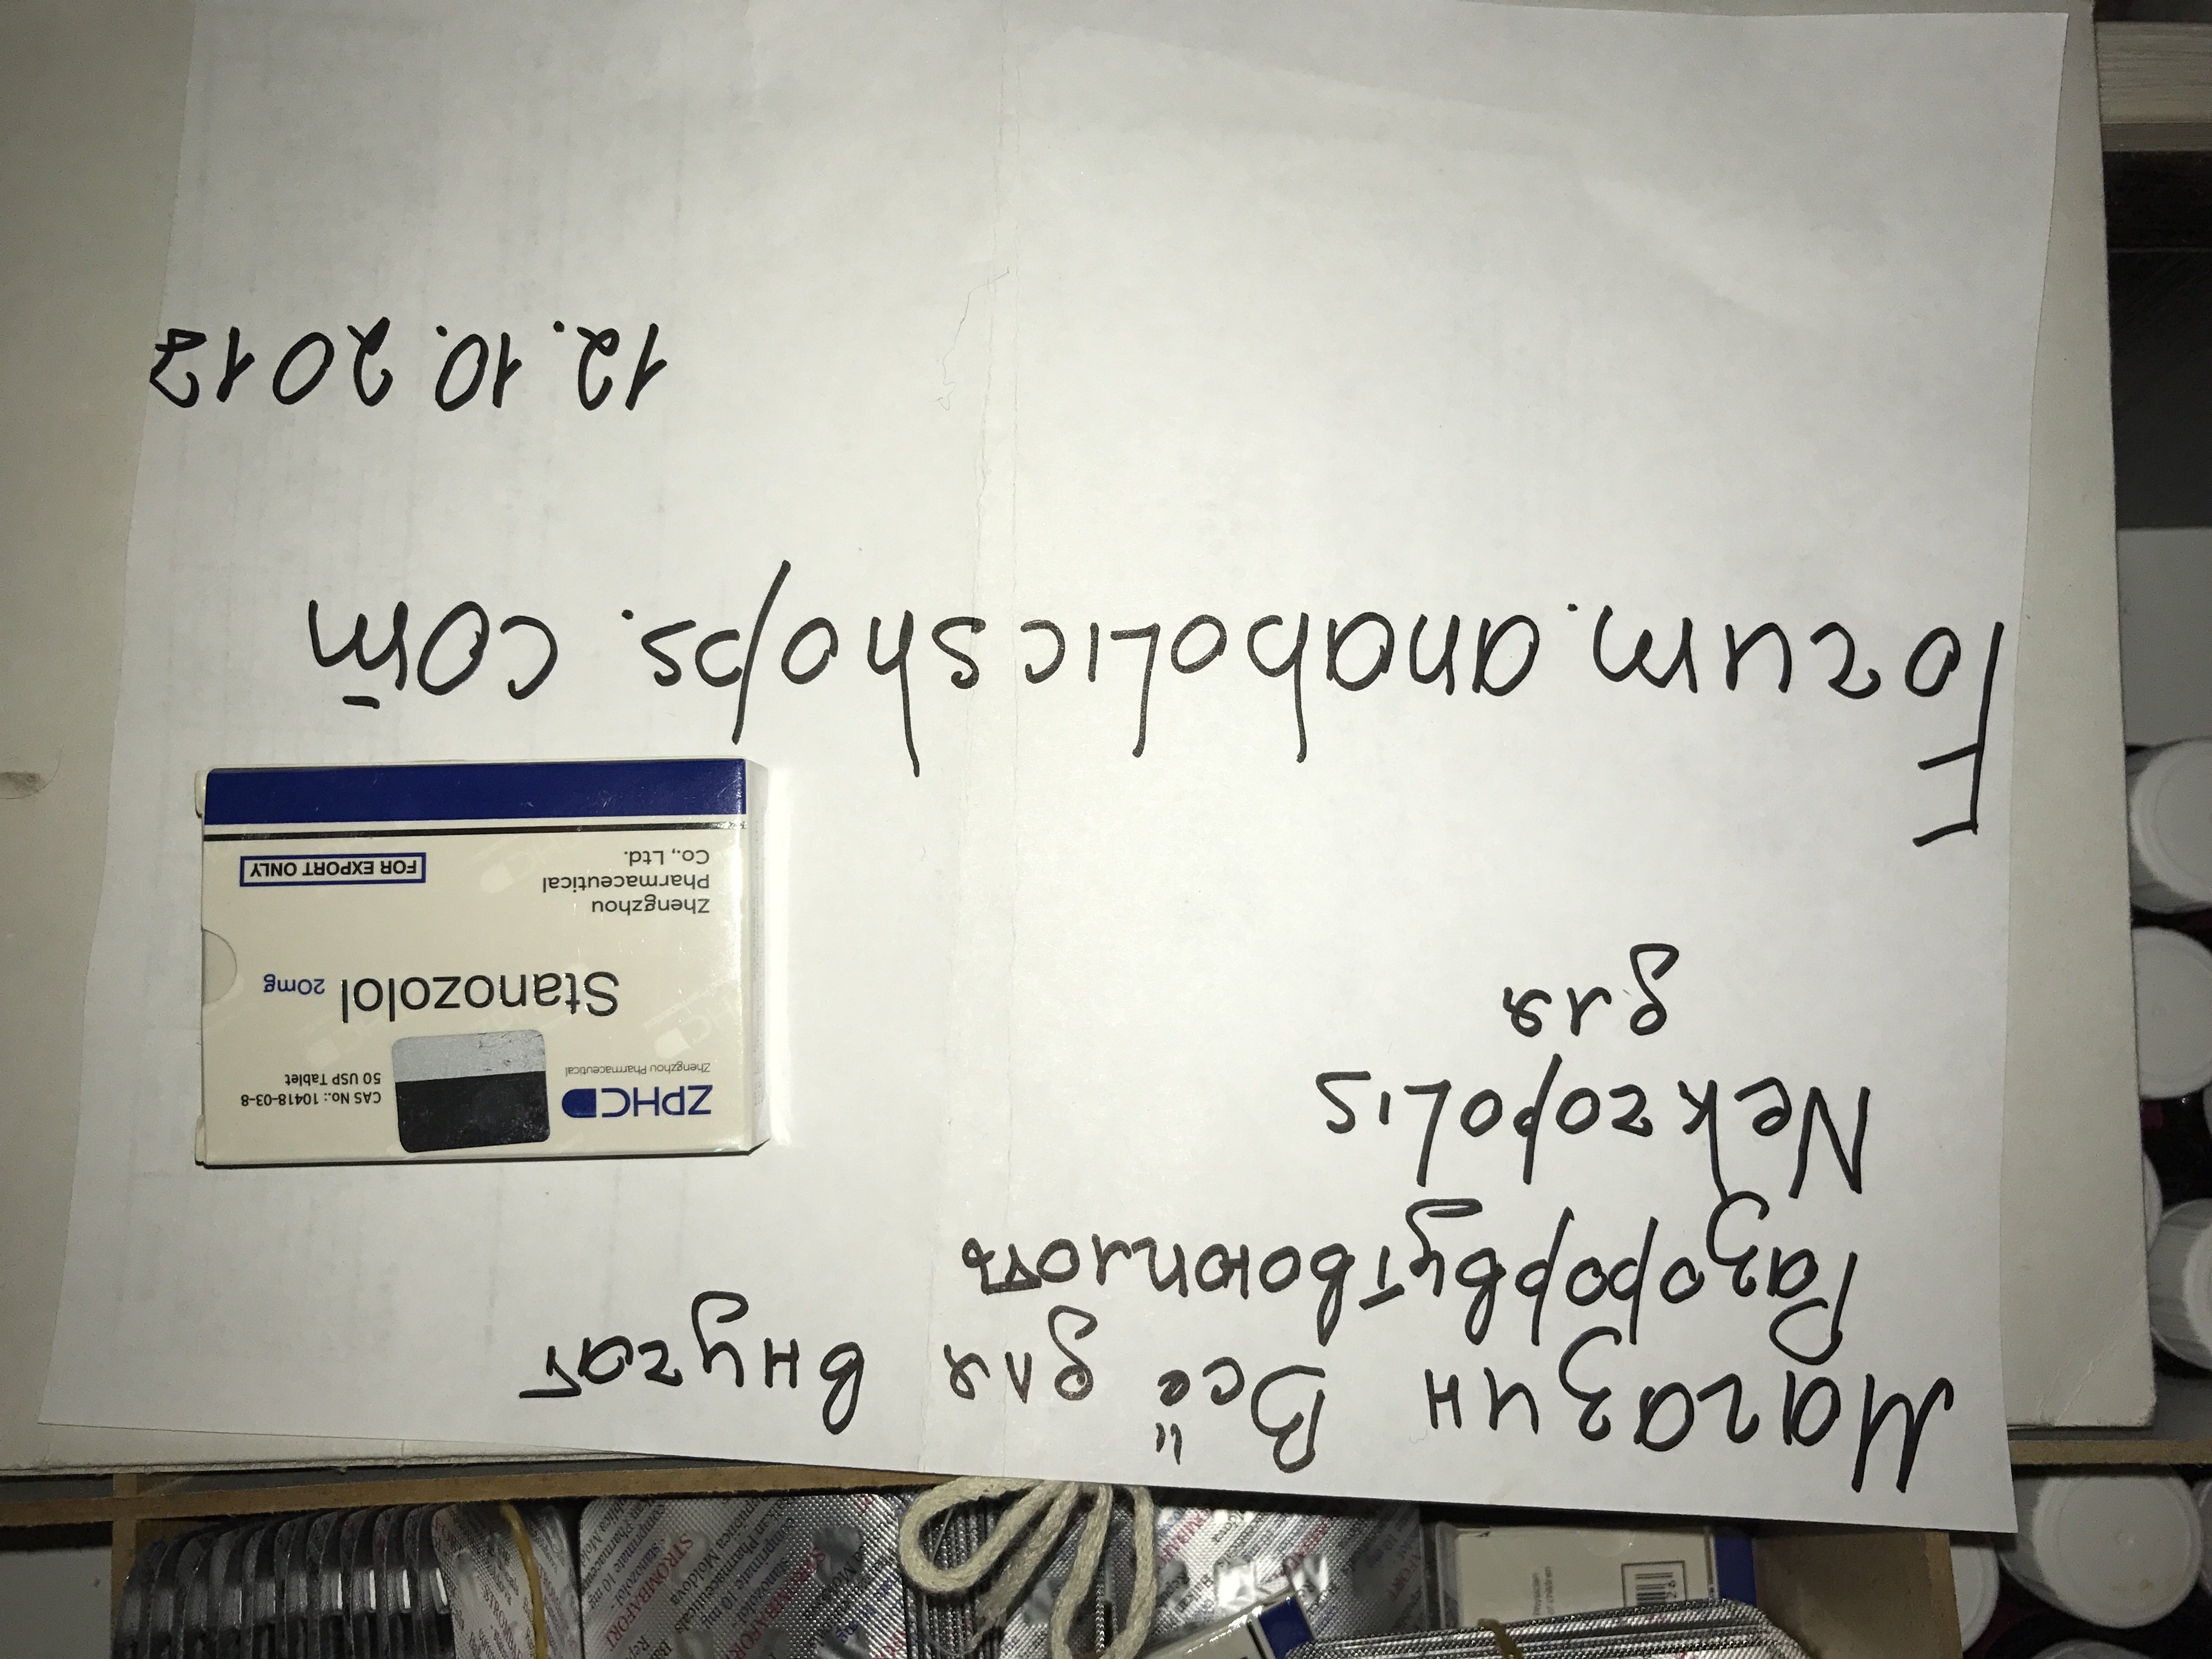 Магазин Всё для внуzат
Разорврвутвоюплоть
Nekzopolis
для
Fozum.anabolicshops.com
12.10.2017
ZPHC
Zhengzhou Pharmaceutical
CAS No.: 10418-03-8
50 USP Tablet
Stanozolol 20mg
Zhengzhou
Pharmaceutical
Co., Ltd.
FOR EXPORT ONLY
STROMBAFORT